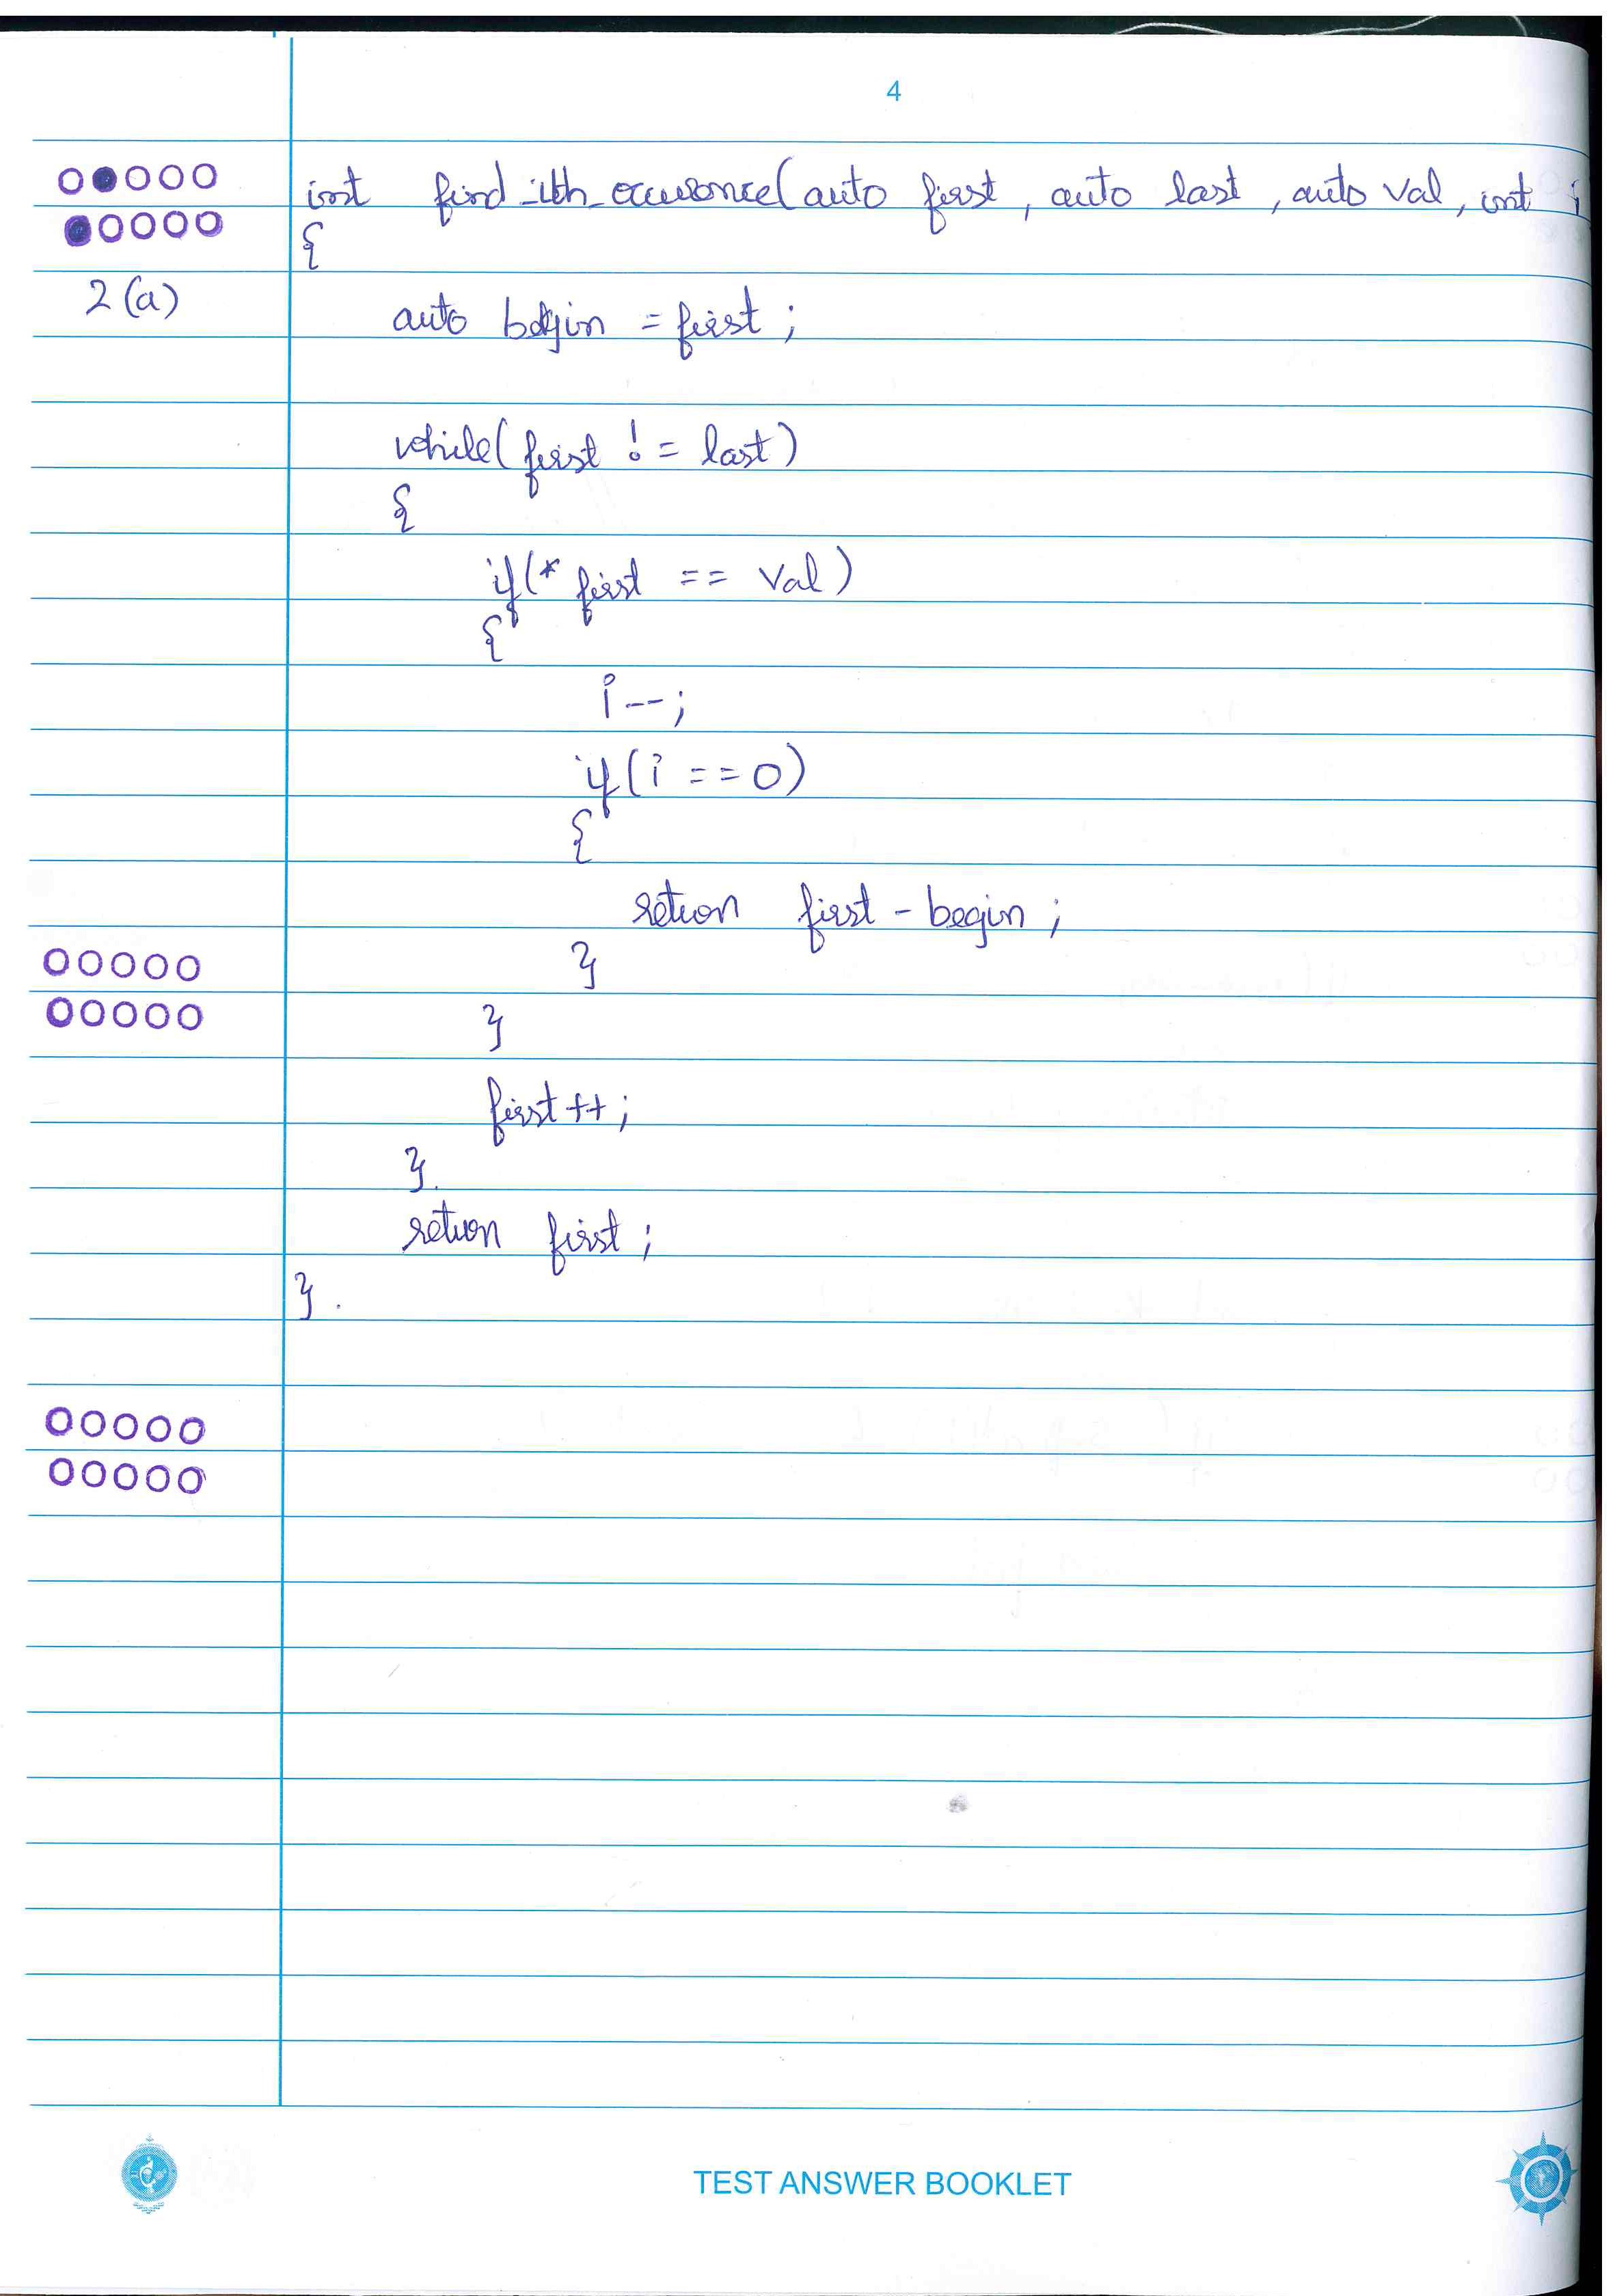 4
int find_ith_occurence(auto first, auto last, auto val, int i
{
2(a)
auto begin = first;
while(first != last)
{
if(* first == val)
{
i--;
if(i == 0)
{
return first - begin;
}
}
first++;
}.
return first;
}.
TEST ANSWER BOOKLET